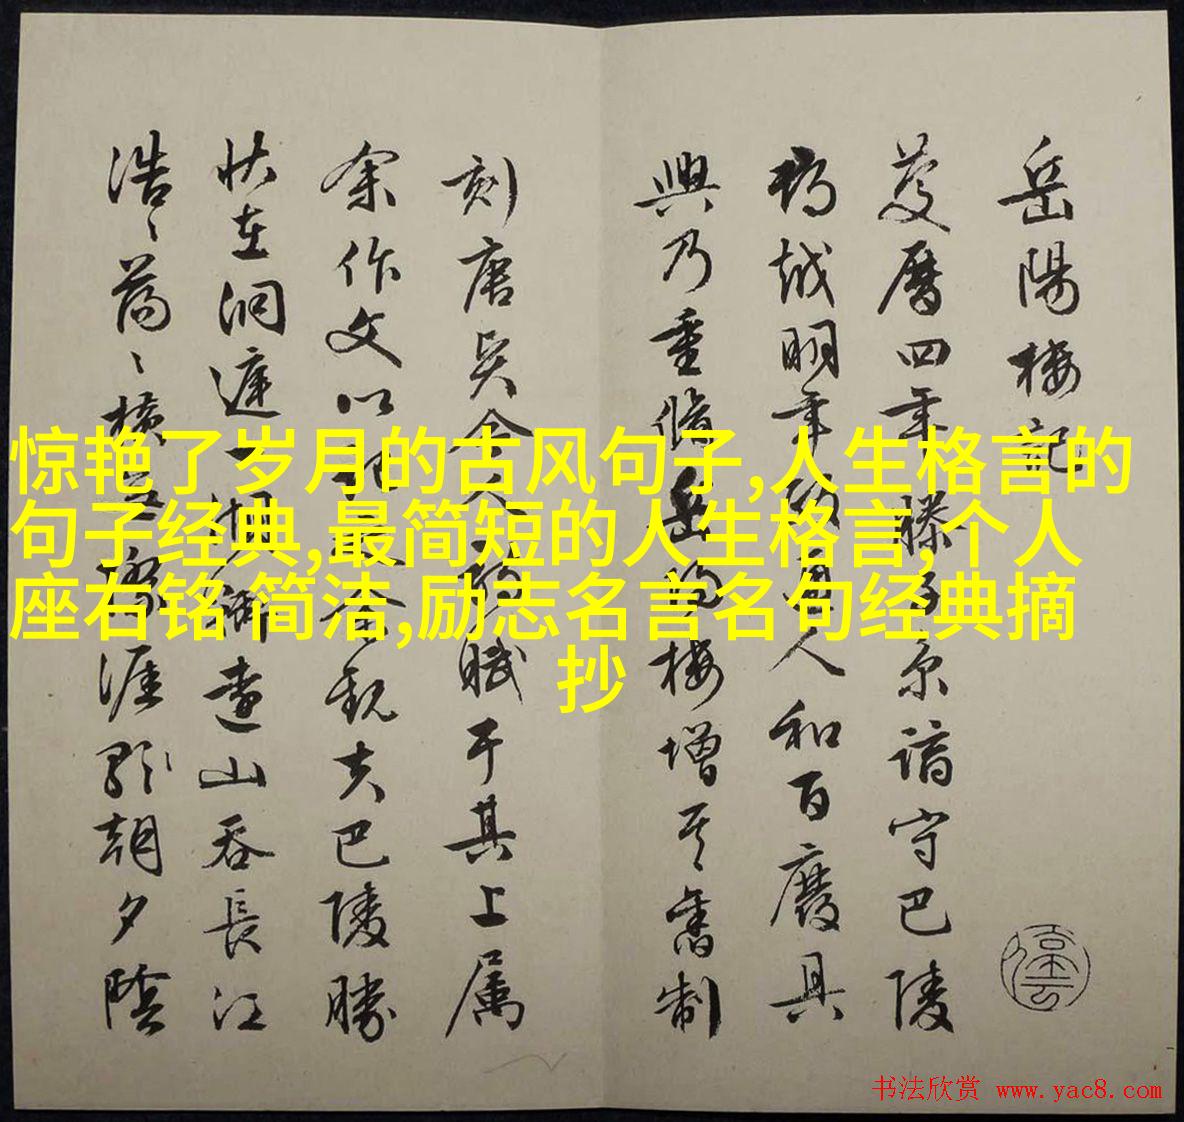 岳陽楼記
慶曆四年滕子京謫守巴陵
越明年人和百廢具
興乃重脩岳陽楼增其舊制
刻唐今人賦于其上属
余作文以記余觀夫巴陵勝
狀在洞庭一湖銜遠山吞長江
浩〻蕩〻橫際涯朝夕陰
惊艳了岁月的古风句子,人生格言的
句子经典,最简短的人生格言,个人
座右铭 简洁,励志名言名句经典摘
抄
书法欣赏 www.yac8.com